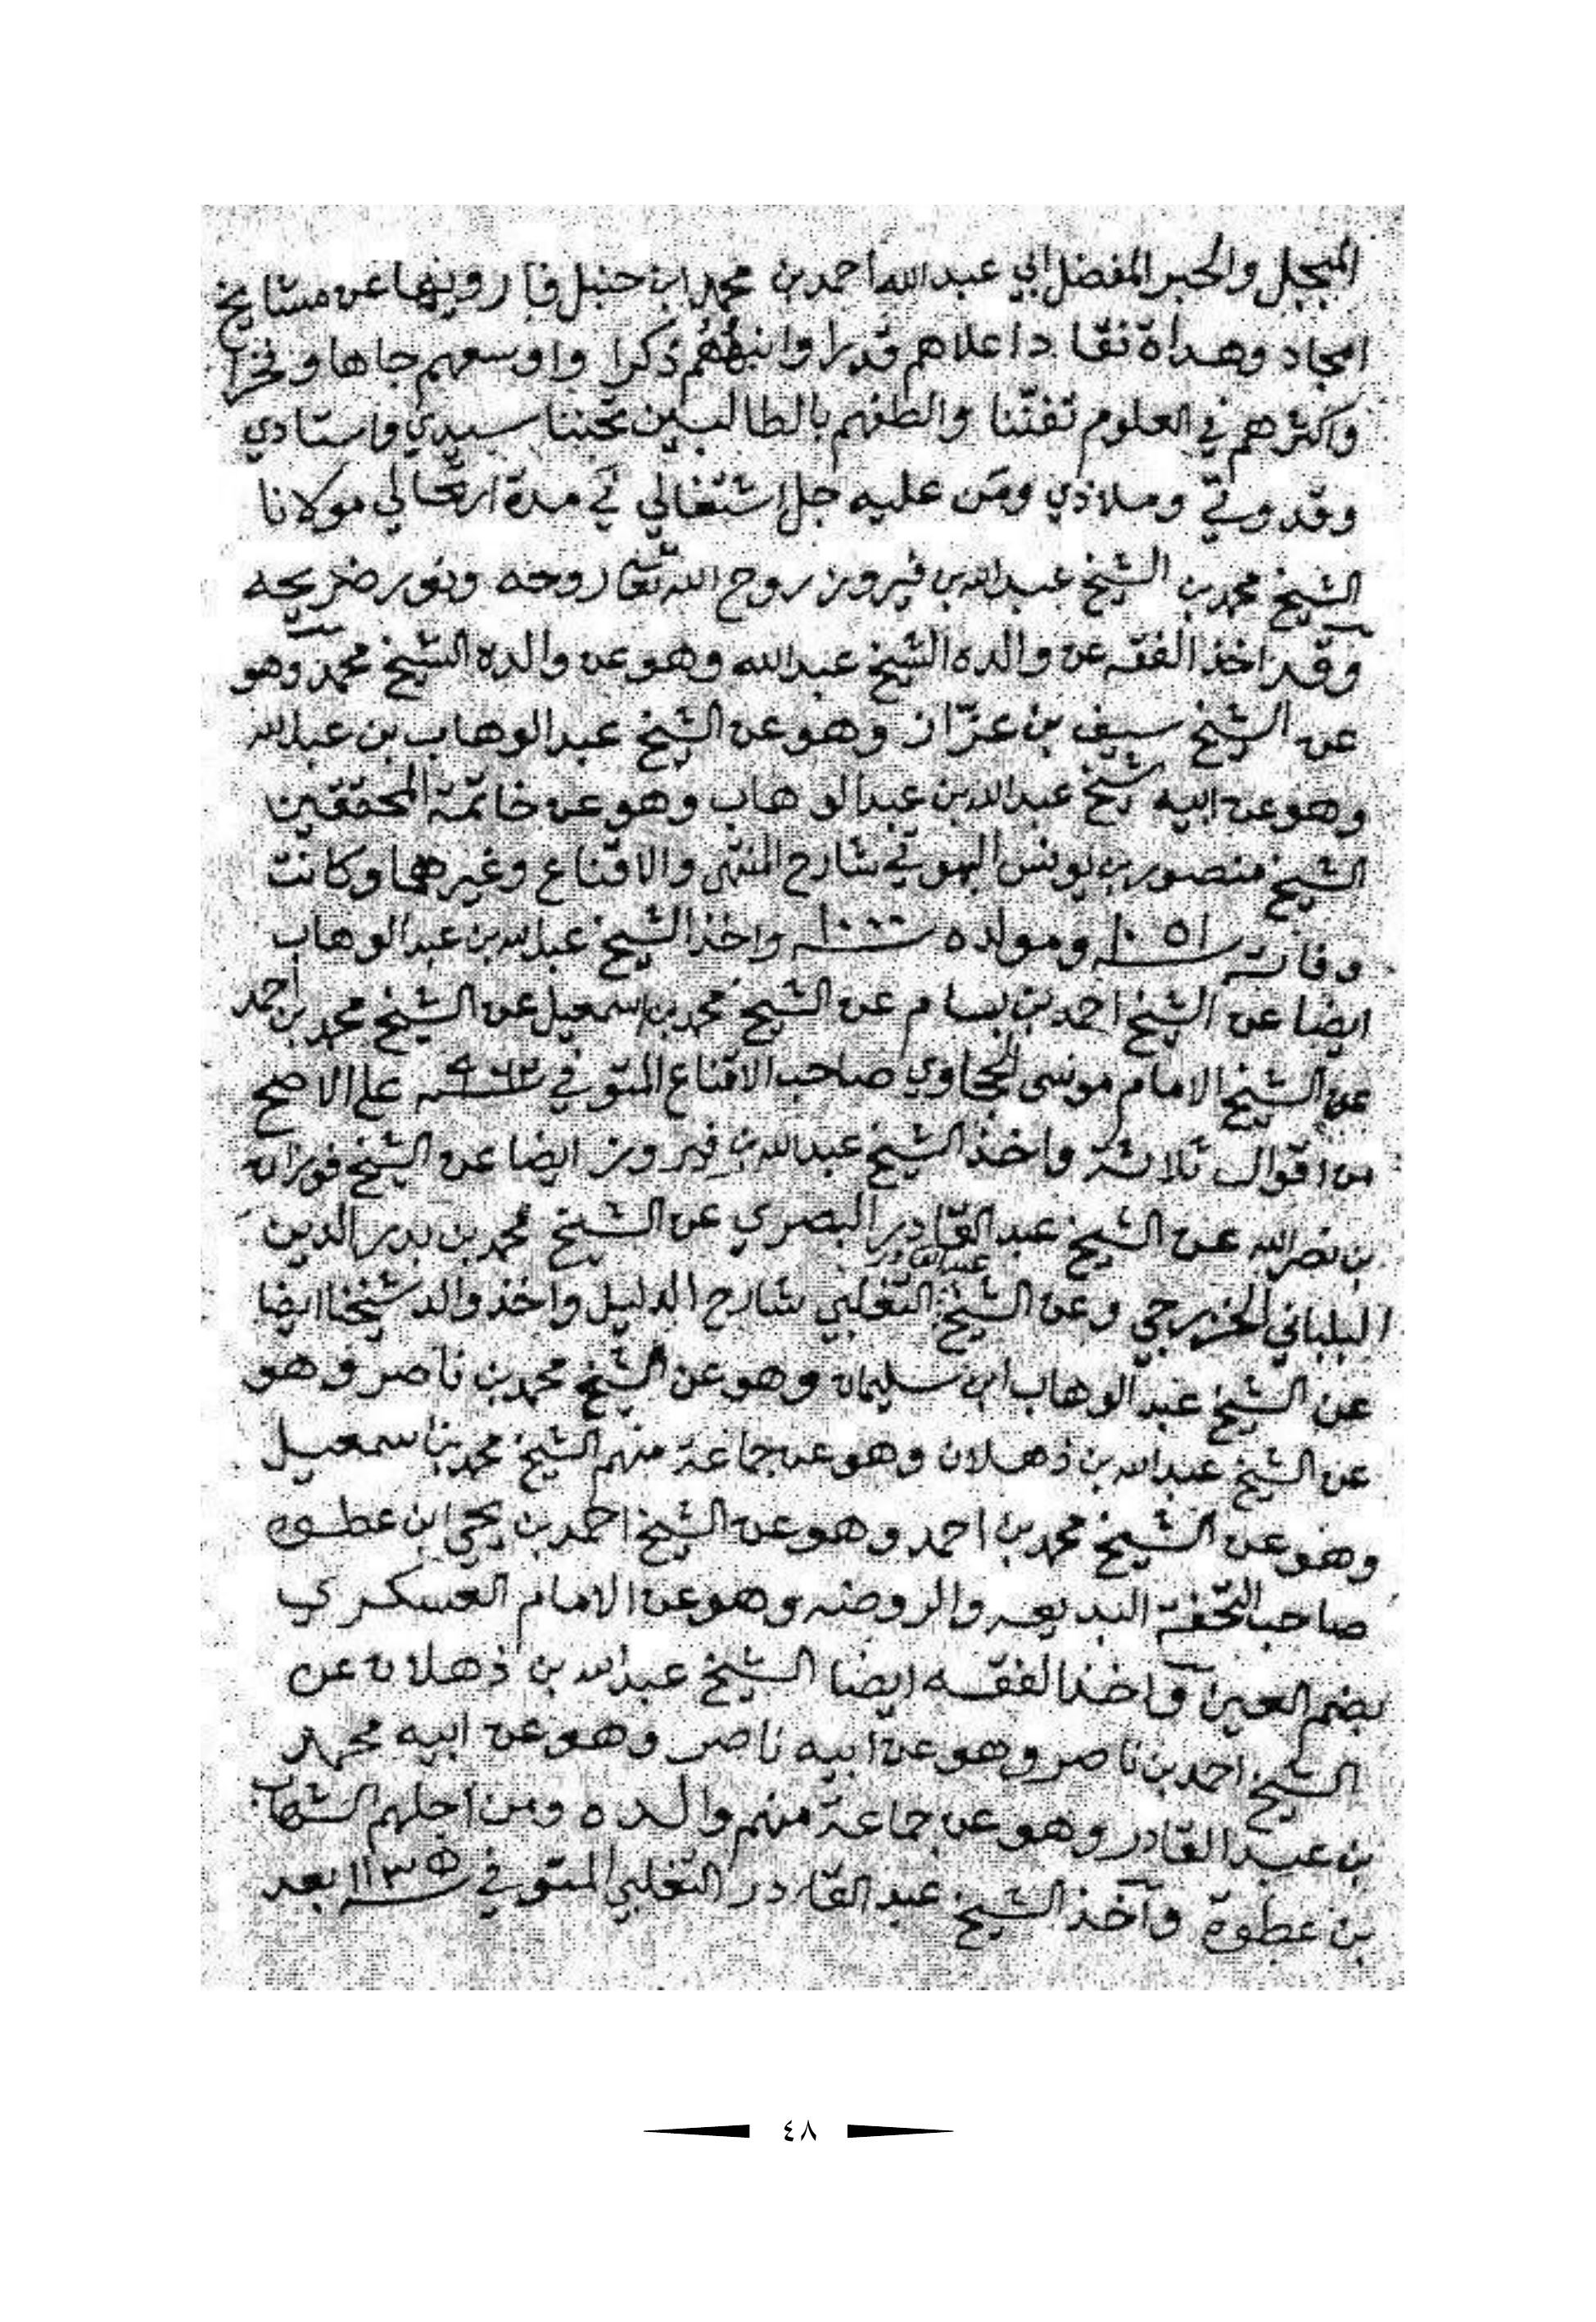 المبجل والحبر المفضل ابي عبدالله احمد بن محمد ابن حنبل فارويها عن مشايخ
امجاد وهداة نقاد اعلاهم قدرا وانبههم ذكرا واوسعهم جاها وفخرا
واكثرهم في العلوم تفننا والطفهم بالطالبين تحننا سيدي واستادي
وقدوتي وملاذي ومن عليه جل اشتغالي في مدة ارتحالي مولانا
الشيخ محمد بن الشيخ عبدالله بن فيروز روح الله تعا روحه ونور ضريحه
وقد اخذ الفقه عن والده الشيخ عبدالله وهو عن والده الشيخ محمد وهو
عن الشيخ سيف بن عزاز وهو عن الشيخ عبدالوهاب بن عبدالله
وهو عن ابيه شيخ عبدالله بن عبدالوهاب وهو عن خاتمة المحققين
الشيخ منصور بن يونس البهوتي شارح المنتهى والاقناع وغيرهما وكانت
وفاته سنة ١٠٥١ ومولده سنة ١٠٠٠ واخذ الشيخ عبدالله بن عبدالوهاب
ايضا عن الشيخ احمد بن بسام عن الشيخ محمد بن اسمعيل عن الشيخ محمد بن احمد
عن الشيخ الامام موسى الحجاوي صاحب الاقناع المتوفي سنة ٩٦٢ على الاصح
من اقوال ثلاثة واخذ الشيخ عبدالله بن فيروز ايضا عن الشيخ فوزان
بن نصرالله عن الشيخ عبدالقادر البصري عن الشيخ محمد بن بدر الدين
البلباني الخزرجي وعن الشيخ عبدالقادر التغلبي شارح الدليل واخذ والد شيخنا ايضا
عن الشيخ عبدالوهاب ابن سليمان وهو عن الشيخ محمد بن ناصر وهو
عن الشيخ عبدالله بن ذهلان وهو عن جماعة منهم الشيخ محمد بن اسمعيل
وهو عن الشيخ محمد بن احمد وهو عن الشيخ احمد بن يحيى ابن عطوه
صاحب التحفة البديعه والروضه وهو عن الامام العسكري
بضم العين واخذ الفقه ايضا الشيخ عبدالله بن ذهلان عن
الشيخ احمد بن ناصر وهو عن ابيه ناصر وهو عن ابيه محمد
بن عبدالقادر وهو عن جماعة منهم والده ومن اجلهم الشهاب
بن عطوة واخذ الشيخ عبدالقادر التغلبي المتوفي سنة ١١٣٥ بعد
٤٨